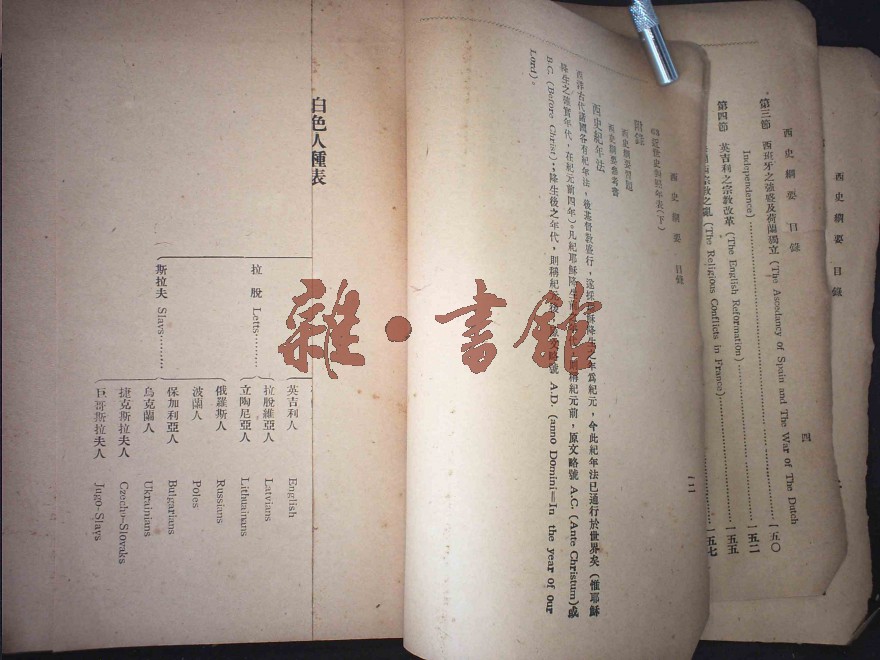 西史綱要 目錄
西史綱要 目錄 四
第三節 西班牙之強盛及荷蘭獨立 (The Ascedancy of Spain and The War of The Dutch
Independence) 一五〇
第四節 英吉利之宗教改革 (The English Reformation) 一五二
一五五
宗教之亂 (The Religious Conflicts in France) 一五七
西史綱要 目錄
年表(下)
附錄
西史綱要習題
西史綱要參考書
西史紀年法
西洋古代諸國各有紀年法,後基督教盛行,遂採耶穌降生之年為紀元,今此紀年法已通行於世界矣(惟耶穌
降生之確實年代,在紀元前四年)。凡紀耶穌降生前稱紀元前,原文略號 A.C. (Ante Christum)或
B.C. (Before Christ);降生後之年代,則稱紀元後,原文略號 A.D. (anno Domini=In the year of our
Lord)。
白色人種表
英吉利人 English
拉脫 Letts
拉脫維亞人 Latvians
立陶尼亞人 Lithuainans
斯拉夫 Slavs
俄羅斯人 Russians
波蘭人 Poles
保加利亞人 Bulgarians
烏克蘭人 Ukrainians
捷克斯拉夫人 Czecho-Slovaks
巨哥斯拉夫人 Jugo-Slavs
雜·書館